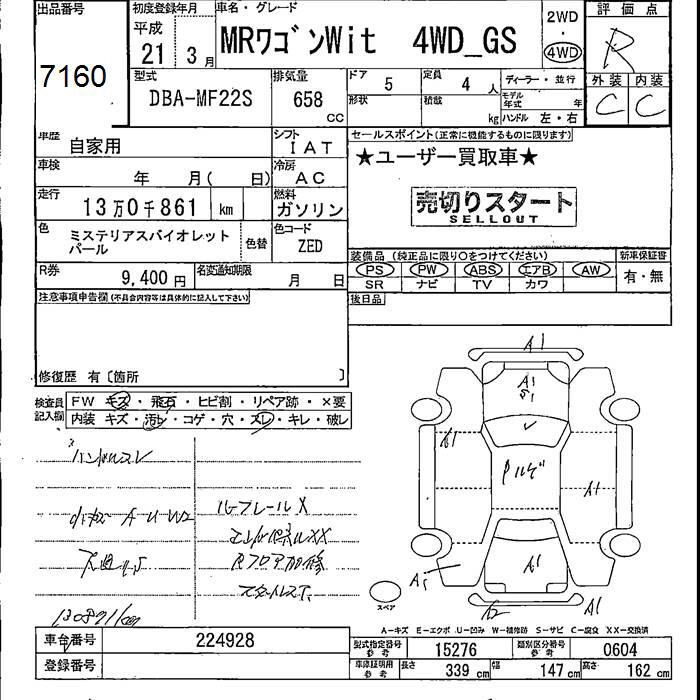 出品番号
7160
初度登録年月
平成
21 3月
車名・グレード
MRワゴンWit 4WD_GS
2WD
・
4WD
評価点
R
外装 内装
C C
型式
DBA-MF22S
排気量
658
cc
ドア
5
定員
4 人
ディーラー・並行
形状
積載
kg
モデル年式 年
ハンドル 左・右
車歴
自家用
シフト
IAT
セールスポイント(正常に機能するものに限ります)
★ユーザー買取車★
売切りスタート
SELLOUT
車検
年 月( 日)
冷房
AC
走行
13万0千861 km
燃料
ガソリン
色
ミステリアスバイオレット
パール
色替
色コード
ZED
装備品(純正品に限り○をつけてください)
新車保証書
PS PW ABS エアB AW
SR ナビ TV カワ
有・無
R券
9,400円
名変通知期限
月 日
後日品
注意事項申告欄(不具合内容等は具体的に記入して下さい)
修復歴 有〔箇所 〕
検査員
記入欄
FW キズ・飛石・ヒビ割・リペア跡・×要
内装 キズ・汚れ・コゲ・穴・スレ・キレ・破レ
ハンドルスレ
A U W2
ルーフレールX
130871km
A1
A1
A1
A1
A1
A1
スペア
A-キズ E-エクボ U-凹み W-補修跡 S-サビ C-腐食 XX-交換済
車台番号
224928
登録番号
型式指定番号
参考
15276
類別区分番号
参考
0604
車庫証明用
参考
長さ
339 cm
幅
147 cm
高さ
162 cm